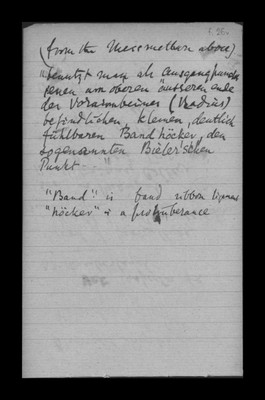 (from the Mesosnathern above)
"benutzt man als Ausgangspunkt
jenen am oberen äusseren ende
des Vorarmbeines (Radius)
befindlichen, kleinen, deutlich
fühlbaren Bandhöcker, den
sogenannten Bieler'schen
Punkt "
"Band" is band ribbon ligament
"höcker" is a protuberance